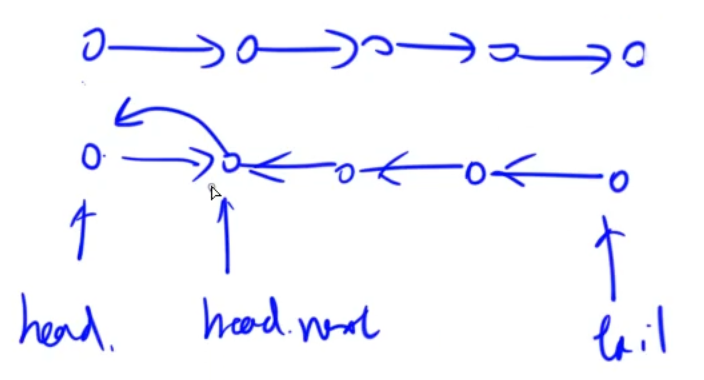 head. head.next tail